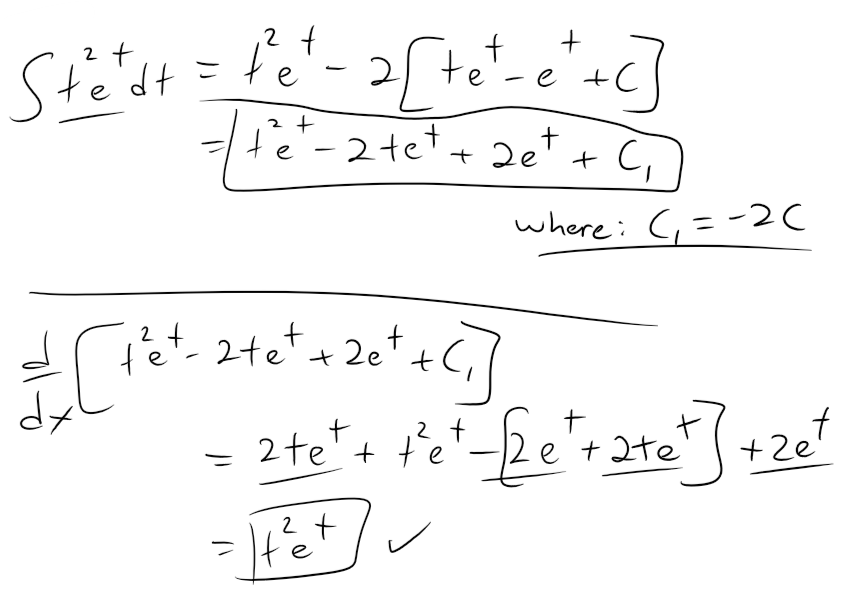 ∫t²eᵗdt = t²eᵗ - 2[teᵗ - eᵗ + C]
= t²eᵗ - 2teᵗ + 2eᵗ + C₁
where: C₁ = -2C
d/dx [t²eᵗ - 2teᵗ + 2eᵗ + C₁]
= 2teᵗ + t²eᵗ - [2eᵗ + 2teᵗ] + 2eᵗ
= t²eᵗ ✓